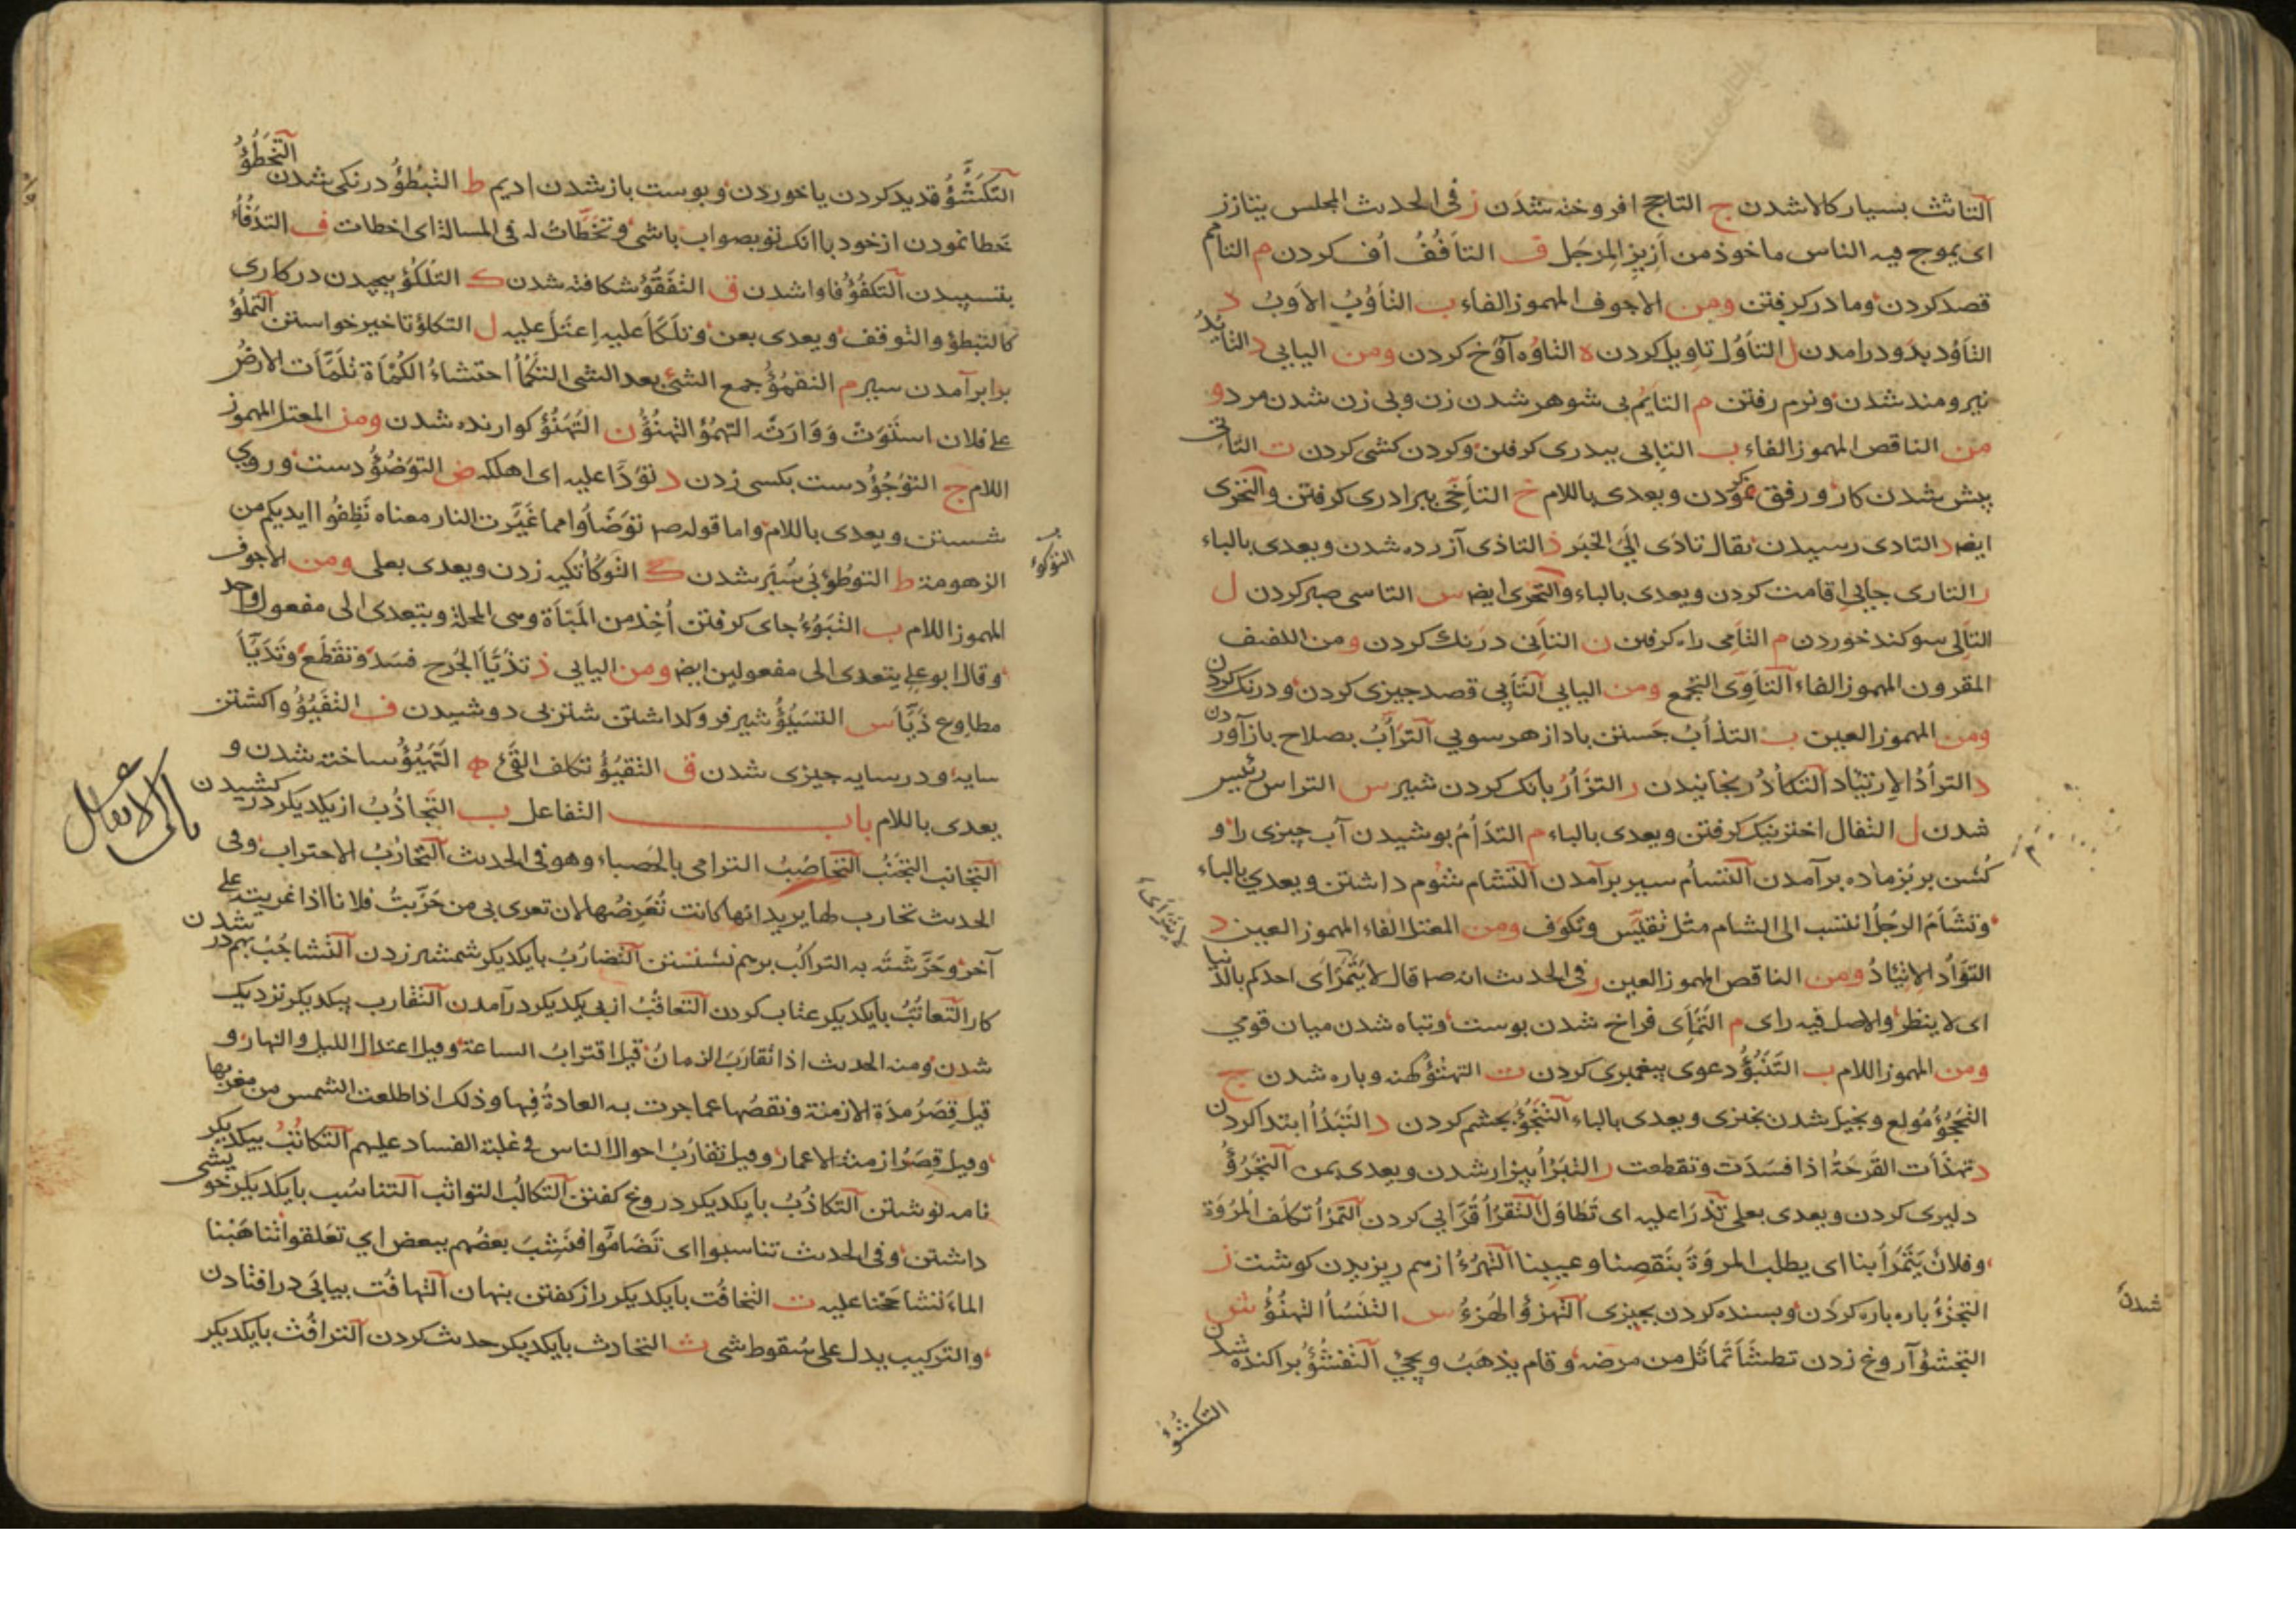 التاثث بسیار کالا شدن ج التاجج افروخته شدن ز فی الحدیث المجلس یتازز
ای یموج فیه الناس ماخوذ من اَزِیزِ المِرجَل ف التاَفُفُ اُف کردن م التامم
قصد کردن ومادر گرفتن ومن الاجوف المهموز الفاء ب التَاَوُبُ الاَوبُ د
التاوُد بدو درامدن ل التاَوُل تاویل کردن ه التاوُه آوُخ کردن ومن الیایی د التایُدُ
نیرومند شدن ونرم رفتن م التایُم بی شوهر شدن زن وبی زن شدن مرد و
من الناقص المهموز الفاء ب التابی بپدری گرفتن وکردن کشی کردن ت التاتی
پیش شدن کار ورفق نمودن ویعدی باللام خ التاَخّی ببرادری گرفتن والتحری
ایضا د التادی رسیدن یقال تادَی اِلَیَّ الخبَر ذ التاذی آزرده شدن ویعدی بالباء
ر التاری جایی اقامت کردن ویعدی بالباء والتحری ایضا س التاسی صبر کردن ل
التاَلی سوکند خوردن م التاَمی راه گرفتن ن التاَنی درنک کردن ومن اللفیف
المقرون المهموز الفاء التاَوّی التجمع ومن الیایی التاَیی قصد چیزی کردن ودرنک کردن
ومن المهموز العین ب التذاُبُ جَستن باد از هر سویی التراُبُ بصلاح بازآوردن
د التراُدُ الاِرتیاد التکاُدُ رنجانیدن ر التزاُرُ بانک کردن شیر س التراس رئیس
شدن ل التفال اختر نیک گرفتن ویعدی بالباء م التذاُمُ بوشیدن آب چیزی را و
کُشن بر بُز ماده برآمدن التسأم سیر برآمدن التشام شوم داشتن ویعدی بالباء
وتشاَمَ الرجُلُ انتسب الی الشام مثل تقیّس وتکوّف ومن المعتل الفاء المهموز العین د
التوَاُد الاِتیادُ ومن الناقص المهموز العین ر فی الحدیث انه صم قال لا یَتَمَراَی احدکم بالدنیا
ای لا ینظر والاصل فیه رای م التَمَاَی فراخ شدن بوست وتباه شدن میان قومی
ومن المهموز اللام ب التَنَبُؤُ دعوی پیغمبری کردن ت التهتؤ کهنه وباره شدن ج
التَحَجُؤُ مُولع وبخیل شدن بچیزی ویعدی بالباء التنَجُؤُ بچشم کردن د التبدُأ ابتدا کردن
ذ تهذَاَت القرحَةُ اذا فسَدَت وتقطعت ر التبَرُأ بیزار شدن ویعدی بمن التجَرُؤُ
دلیری کردن ویعدی بعلی تَدَرَا علیه ای تَطَاوَل التَقَرُأ قُرّایی کردن التَمَرُأ تکلف المرُوَة
وفلان یَتَمَرَأُ بنا ای یطلب المروَةَ بنَقصِنا وعیبِنا التهرُءُ از هم ریزیدن کوشت ز
التجزُءُ باره باره کردن وبسنده کردن بچیزی التهزؤ الهُزءُ س التنَسُأ التهَتُؤُ ش
التجشؤ آروغ زدن تطشَأ تَماثَل من مرَضه وقام یذهَبُ ویجیُ التفَشُؤُ براکنده شدن
شدن
لا یتمرای
التکَشُؤُ
التّکَشُّؤُ قدید کردن یا خوردن وبوست باز شدن ادیم ط التبَطُؤُ درنکی شدن التَخَطُؤُ
خطا نمودن از خود با انک تو بصواب باشی وتَخَطَّاتُ له فی المسالة ای اخطات ف التدَفُأُ
بتسپیدن التکفُؤُ فاوا شدن ق التَفَقُؤُ شکافته شدن ک التلکُؤ بیچیدن در کاری
کالتبطؤ والتوقف ویعدی بعن وتلَکَّأَ علیه اِعتَلَّ علیه ل التکلؤ تاخیر خواستن التملُؤ
برابر آمدن سیر م التقمُؤُ جمع الشئ بعد الشی التکَمُأ احتشاءُ الکُمَاَة تلَمَّأَت الارضُ
علی فلان استَوَت ووَارَته التهمُؤ التهتُؤُ ن التهَنُؤُ کوارنده شدن ومن المعتل المهموز
اللام ج التوَجُؤُ دست بکسی زدن د توَدَّا علیه ای اهلکه ض التوَضُؤُ دست وروی
شستن ویعدی باللام واما قوله صم توَضَّاُوا مما غَیَّرت النار معناه نَظِفُوا ایدیکم من
الزهومة ط التوَطُؤ بی سُپَر شدن ک التوَکُأُ تکیه زدن ویعدی بعلی ومن الاجوف
المهموز اللام ب التبَوُءُ جای گرفتن اُخِذ من المَبَاَة وهی المحلة ویتعدی الی مفعول واحد
وقال ابو علی یتعدی الی مفعولین ایضا ومن الیایی ذ تذَیَّأَ الجُرح فسَدَ وتقطَع وتَذَیَّأَ
مطاوع ذَیَّأَ س التسَیُؤُ شیر فروکداشتن شتر بی دوشیدن ف التفَیُؤُ واکشتن
سایه ودر سایه چیزی شدن ق التقیُؤُ تکلف القَئ ه التَهَیُؤُ ساخته شدن و
یعدی باللام باب التفاعل ب التَجاذُبُ از یکدیکر درکشیدن
التجانب التجَنُبُ التحاصُبُ الترامی بالحَصباء وهو فی الحدیث التحازُبُ الاحتراب وفی
الحدیث تحارب لها یرید انها کانت تُعَرِضُها لان تعری بی من حَرَّبتُ فلانا اذا غریته علی
آخر وحَرَّشتُه به التراکُب برهم نشستن التضارُبُ بایکدیکر شمشیر زدن التَشاجُبُ بهم درشدن
کار التَعاتُبُ بایکدیکر عتاب کردن التعاقُبُ از پی یکدیکر درآمدن التَقارب بیکدیکر نزدیک
شدن ومنه الحدیث اذا تقارَبَ الزمانُ قیل اقترابُ الساعة وقیل اعتدال اللیل والنهار و
قیل قِصَرُ مدَة الازمنة ونقصُها عما جرت به العادةُ فیها وذلک اذا طلعت الشمس من مغربها
وقیل قِصَرُ ازمنة الاعمار وقیل تقارُبُ احوال الناس فی غلبة الفساد علیهم التَکاتُبُ بیکدیکر
نامه نوشتن التکاذُبُ بایکدیکر دروغ کفتن التکالُبُ التواثب التناسُب بایکدیکر خویشی
داشتن وفی الحدیث تناسبوا ای تَضَامُّوا فنَشِبَ بعضُهم ببعض ای تعَلقوا اتناهَبنا
الماء تشاححنا علیه ت التخافُت بایکدیکر راز کفتن بنهان التهافُت بیاپی در افتادن
والترکیب یدل علی سُقوط شی ث التحادث بایکدیکر حدیث کردن الترافُث بایکدیکر
التوکؤ